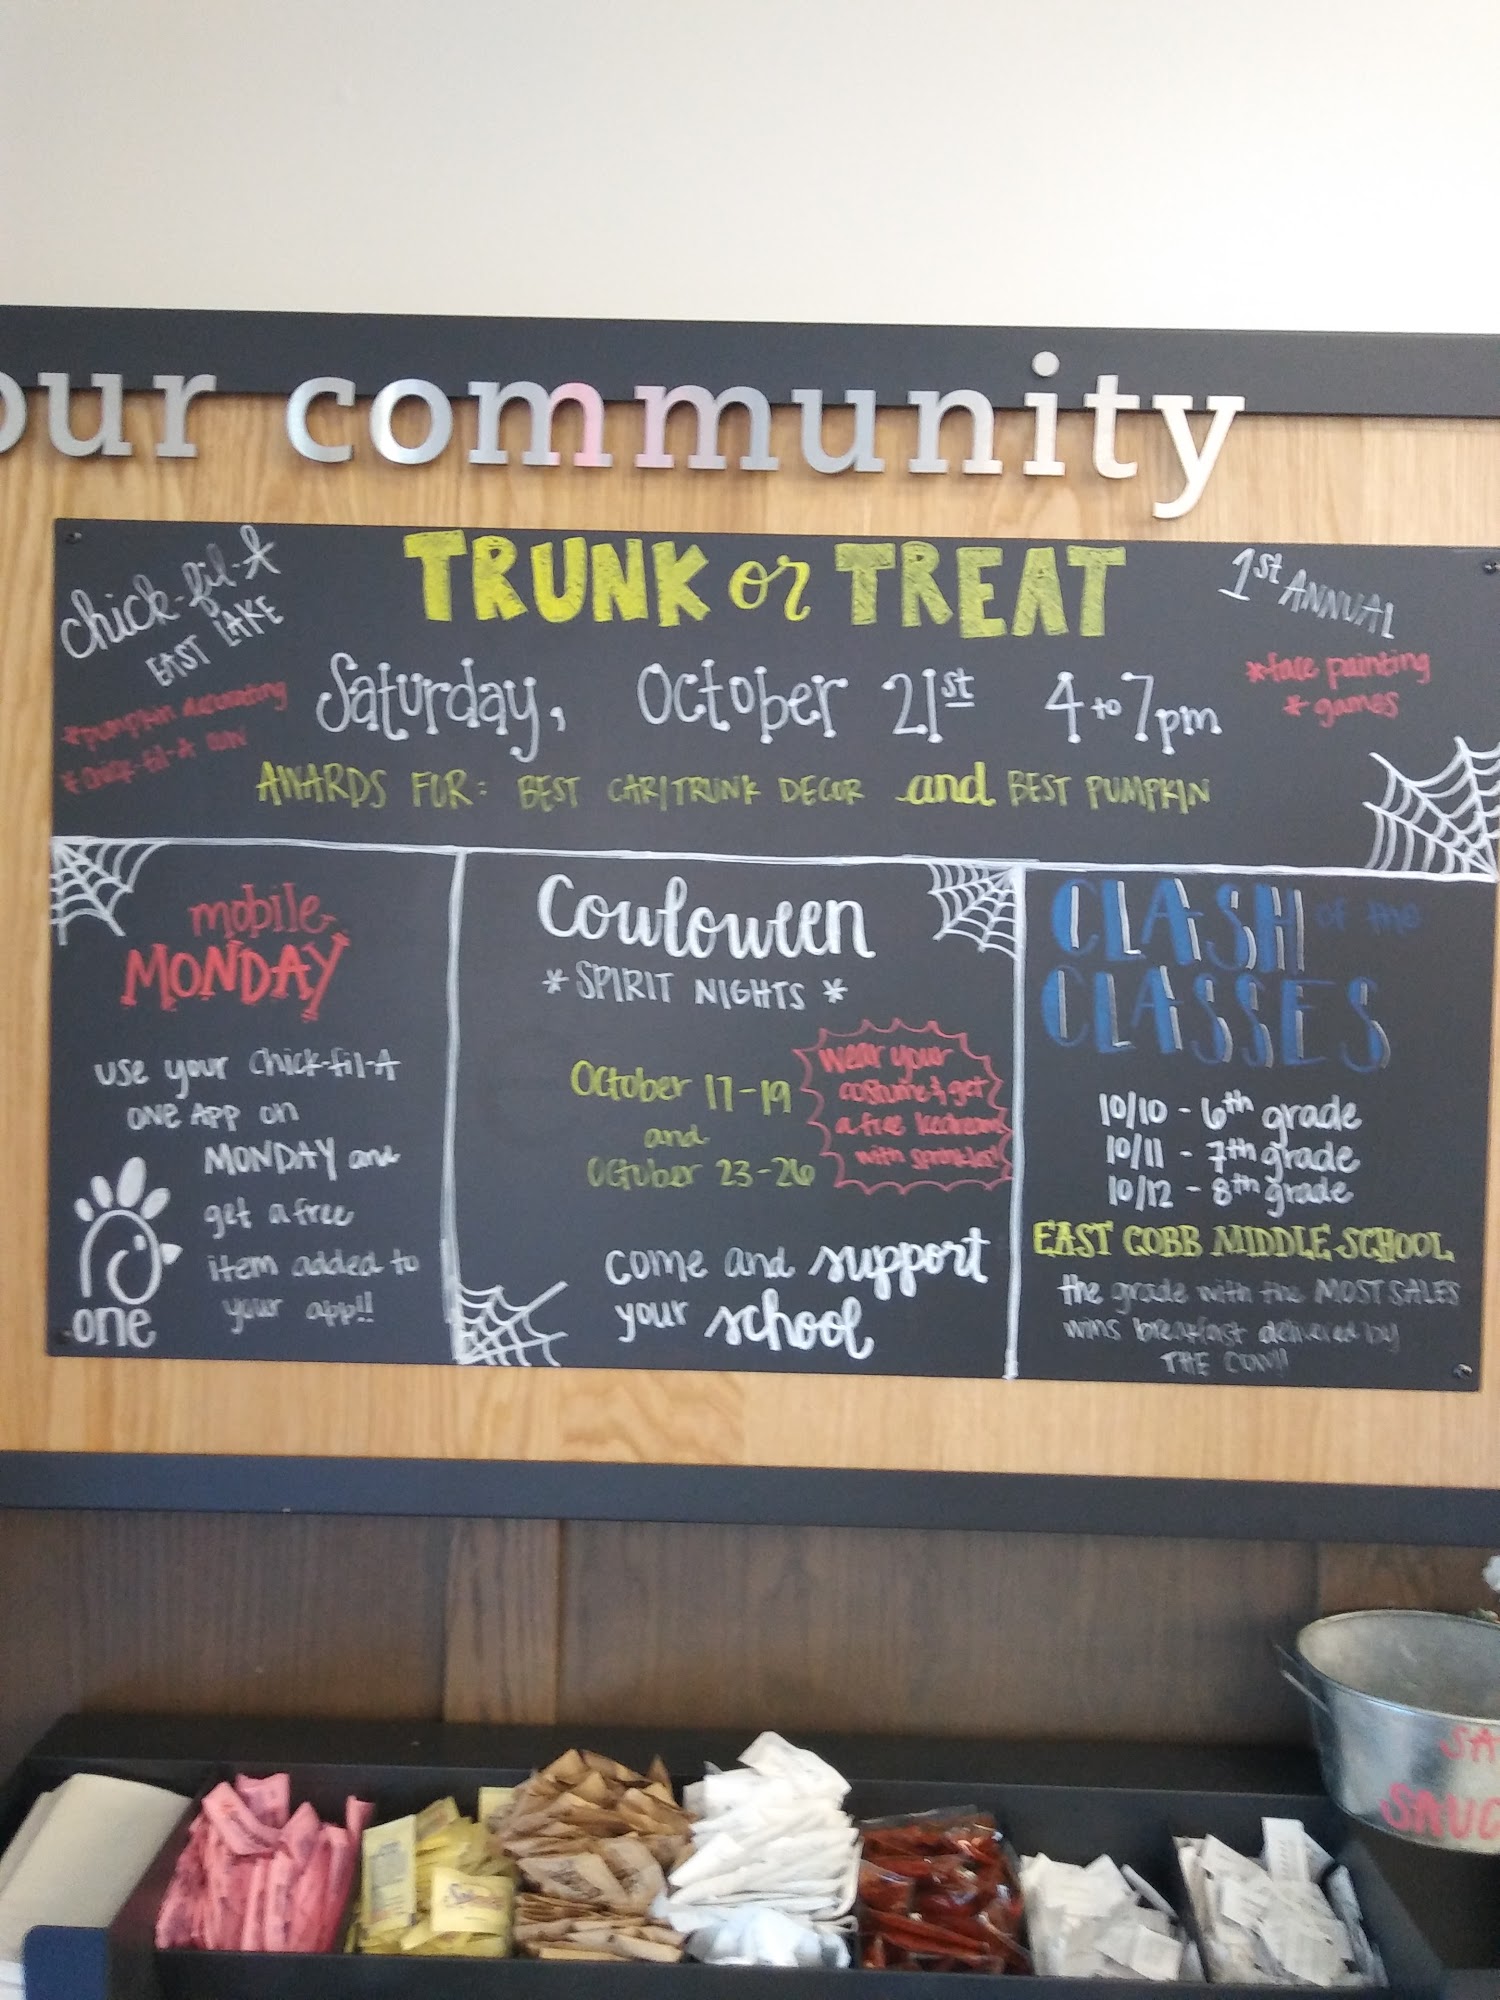 our community
chick-fil-A
EAST LAKE
TRUNK or TREAT
1st ANNUAL
Saturday, October 21st 4 to 7pm
*pumpkin decorating
*chick-fil-A cow
*face painting
*games
AWARDS FOR: BEST CAR/TRUNK DECOR and BEST PUMPKIN
mobile
MONDAY
use your chick-fil-A
ONE APP on
MONDAY and
get a free
item added to
your app!!
one
Cowloween
*SPIRIT NIGHTS*
October 17-19
and
October 23-26
wear your
costume & get
a free icedream
with sprinkles!
come and support
your school
CLASH of the
CLASSES
10/10 - 6th grade
10/11 - 7th grade
10/12 - 8th grade
EAST COBB MIDDLE SCHOOL
the grade with the MOST SALES
wins breakfast delivered by
THE COW!!